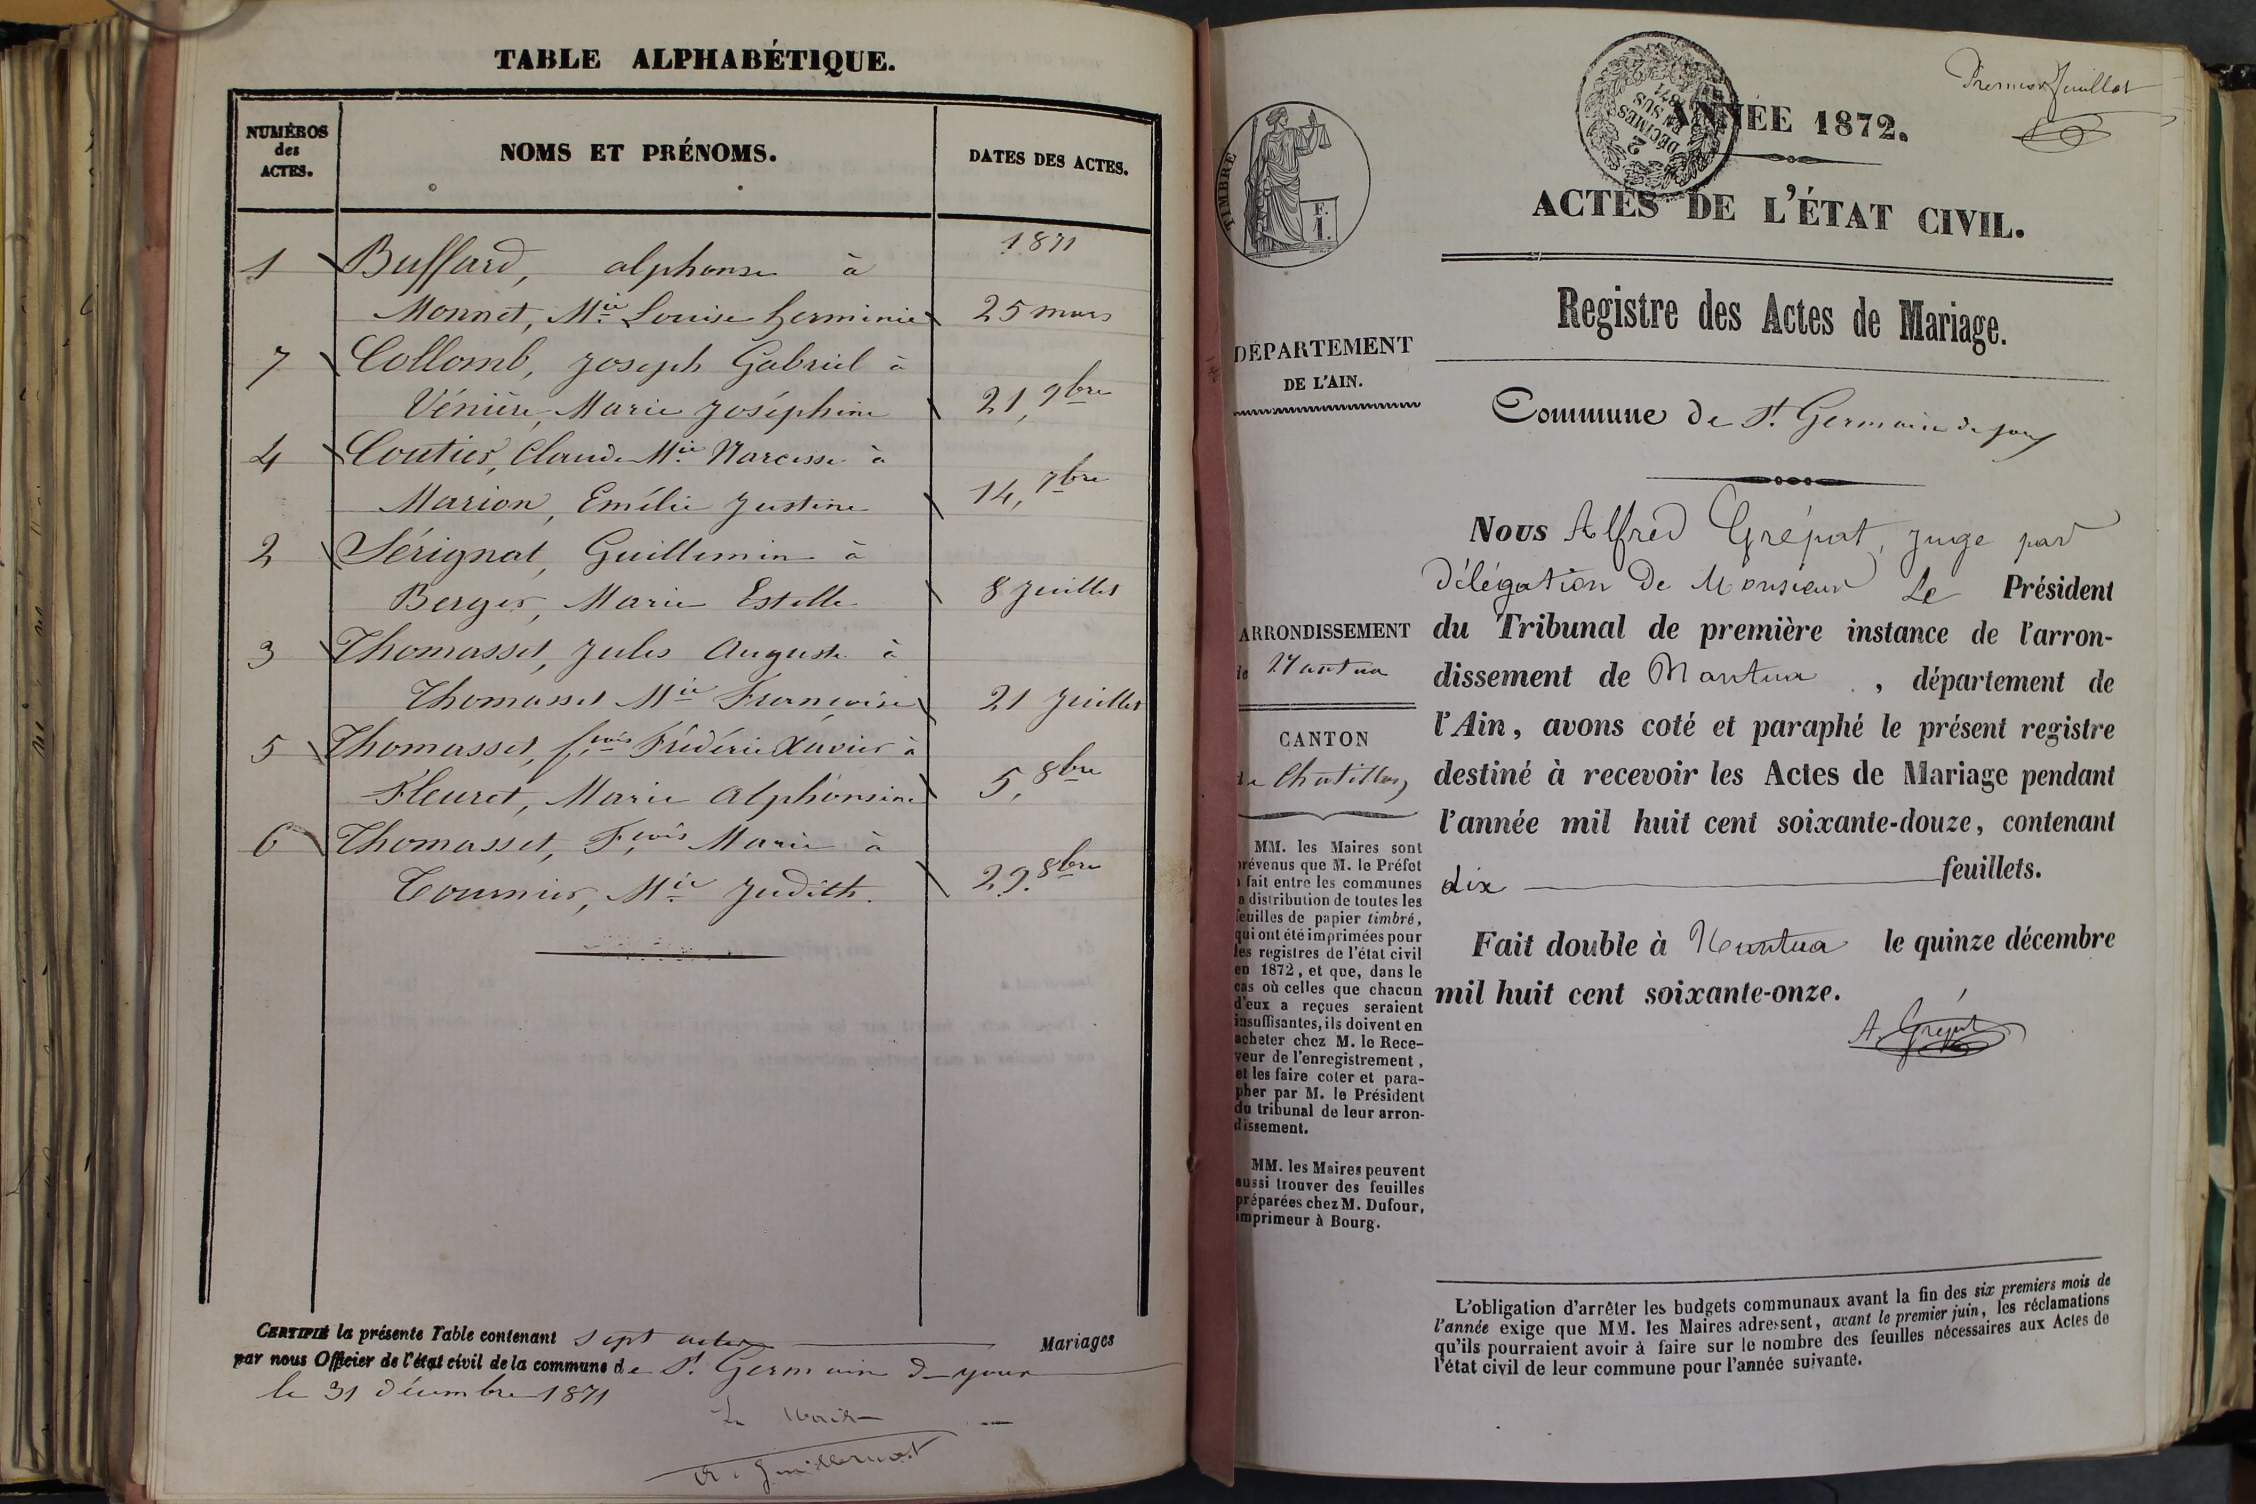 TABLE ALPHABÉTIQUE.
NUMÉROS
des
ACTES.
NOMS ET PRÉNOMS.
DATES DES ACTES.
1871
1 Buffard, alphonse à
Monnet, Mie Louise herminie 25 mars
7 Collomb, joseph Gabriel à
Vénière, Marie joséphine 21, 9bre
4 Coutier, Claude Mie Narcisse à
Marion, Emélie justine 14, 7bre
2 Sérignat, Guillemin à
Berger, Marie Estelle 8 juillet
3 Thomasset, jules auguste à
Thomasset Mie Françoise 21 juillet
5 Thomasset, fçois Frédéric Xavier à
Fleuret, Marie alphonsine 5, 8bre
6 Thomasset, Fçois Marie à
Tournier, Mie judith. 29. 8bre
CERTIFIÉ la présente Table contenant sept actes Mariages
par nous Officier de l'état civil de la commune de St Germain de joux
le 31 décembre 1871
Le Maire
Premier feuillet
TIMBRE
F.
1.
2 DÉCIMES
EN SUS
1871
ANNÉE 1872.
ACTES DE L'ÉTAT CIVIL.
Registre des Actes de Mariage.
DÉPARTEMENT
DE L'AIN.
Commune de St Germain de joux
Nous Alfred Grépat, juge par
délégation de Monsieur Le Président
ARRONDISSEMENT
du Tribunal de première instance de l'arron-
de Nantua
dissement de Nantua, département de
l'Ain, avons coté et paraphé le présent registre
CANTON
de Chatillon
destiné à recevoir les Actes de Mariage pendant
l'année mil huit cent soixante-douze, contenant
dix feuillets.
Fait double à Nantua le quinze décembre
mil huit cent soixante-onze.
A. Grépat
MM. les Maires sont
prévenus que M. le Préfet
a fait entre les communes
la distribution de toutes les
feuilles de papier timbré,
qui ont été imprimées pour
les registres de l'état civil
en 1872, et que, dans le
cas où celles que chacun
d'eux a reçues seraient
insuffisantes, ils doivent en
acheter chez M. le Rece-
veur de l'enregistrement,
et les faire coter et para-
pher par M. le Président
du tribunal de leur arron-
dissement.
MM. les Maires peuvent
aussi trouver des feuilles
préparées chez M. Dufour,
imprimeur à Bourg.
L'obligation d'arrêter les budgets communaux avant la fin des six premiers mois de
l'année exige que MM. les Maires adressent, avant le premier juin, les réclamations
qu'ils pourraient avoir à faire sur le nombre des feuilles nécessaires aux Actes de
l'état civil de leur commune pour l'année suivante.